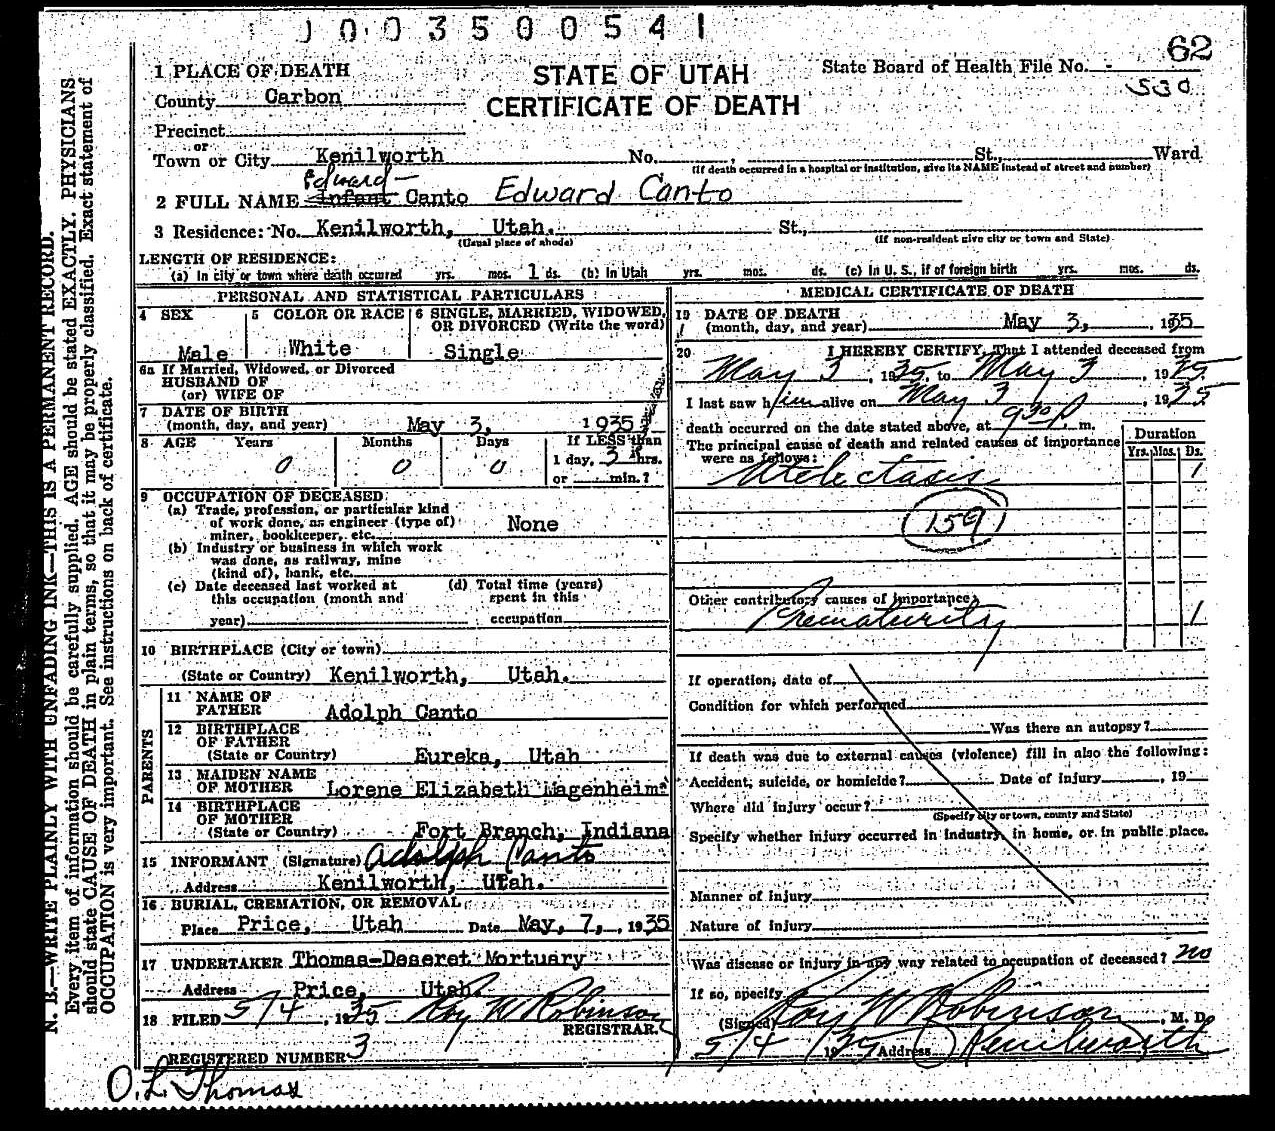 1003500541
62
1 PLACE OF DEATH
STATE OF UTAH
State Board of Health File No. -
530
County Carbon
CERTIFICATE OF DEATH
Precinct
or
Town or City Kenilworth No. , St., Ward
(If death occurred in a hospital or institution, give its NAME instead of street and number)
Edward
2 FULL NAME Infant Canto Edward Canto
3 Residence: No. Kenilworth, Utah. St.,
(Usual place of abode) (If non-resident give city or town and State)
LENGTH OF RESIDENCE:
(a) In city or town where death occurred yrs. mos. 1 ds. (b) In Utah yrs. mos. ds. (c) In U. S., if of foreign birth yrs. mos. ds.
PERSONAL AND STATISTICAL PARTICULARS
4 SEX
Male
5 COLOR OR RACE
White
6 SINGLE, MARRIED, WIDOWED,
OR DIVORCED (Write the word)
Single
6a If Married, Widowed, or Divorced
HUSBAND OF
(or) WIFE OF
7 DATE OF BIRTH
(month, day, and year) May 3, 1935
8 AGE Years Months Days If LESS than
0 0 0 1 day, 3 hrs.
or min.?
9 OCCUPATION OF DECEASED
(a) Trade, profession, or particular kind
of work done, as engineer (type of)
miner, bookkeeper, etc. None
(b) Industry or business in which work
was done, as railway, mine
(kind of), bank, etc.
(c) Date deceased last worked at
this occupation (month and
year)
(d) Total time (years)
spent in this
occupation
10 BIRTHPLACE (City or town)
(State or Country) Kenilworth, Utah.
PARENTS
11 NAME OF
FATHER Adolph Canto
12 BIRTHPLACE
OF FATHER
(State or Country) Eureka, Utah
13 MAIDEN NAME
OF MOTHER Lorene Elizabeth Wagenheim
14 BIRTHPLACE
OF MOTHER
(State or Country) Fort Branch, Indiana
15 INFORMANT (Signature) Adolph Canto
Address Kenilworth, Utah.
16 BURIAL, CREMATION, OR REMOVAL
Place Price, Utah Date May, 7, , 1935
17 UNDERTAKER Thomas-Deseret Mortuary
Address Price, Utah.
18 FILED 5/4 , 1935 Roy W Robinson
REGISTRAR.
REGISTERED NUMBER 3
O. L. Thomas
MEDICAL CERTIFICATE OF DEATH
19 DATE OF DEATH
(month, day, and year) May 3, , 1935
20 I HEREBY CERTIFY, That I attended deceased from
May 3 , 1935, to May 3 , 1935.
I last saw him alive on May 3 , 1935
death occurred on the date stated above, at 930 P. m.
The principal cause of death and related causes of importance
were as follows:
Duration
Yrs. Mos. Ds.
Atelectasis 1
159
Other contributory causes of importance:
Prematurity 1
If operation, date of
Condition for which performed
Was there an autopsy?
If death was due to external causes (violence) fill in also the following:
Accident, suicide, or homicide? Date of injury , 19
Where did injury occur?
(Specify city or town, county and State)
Specify whether injury occurred in industry, in home, or in public place.
Manner of injury
Nature of injury
Was disease or injury in any way related to occupation of deceased? no
If so, specify
(Signed) Roy W Robinson , M. D.
5/4 1935 Address Kenilworth
N. B.—WRITE PLAINLY WITH UNFADING INK—THIS IS A PERMANENT RECORD.
Every item of information should be carefully supplied. AGE should be stated EXACTLY. PHYSICIANS
should state CAUSE OF DEATH in plain terms, so that it may be properly classified. Exact statement of
OCCUPATION is very important. See instructions on back of certificate.